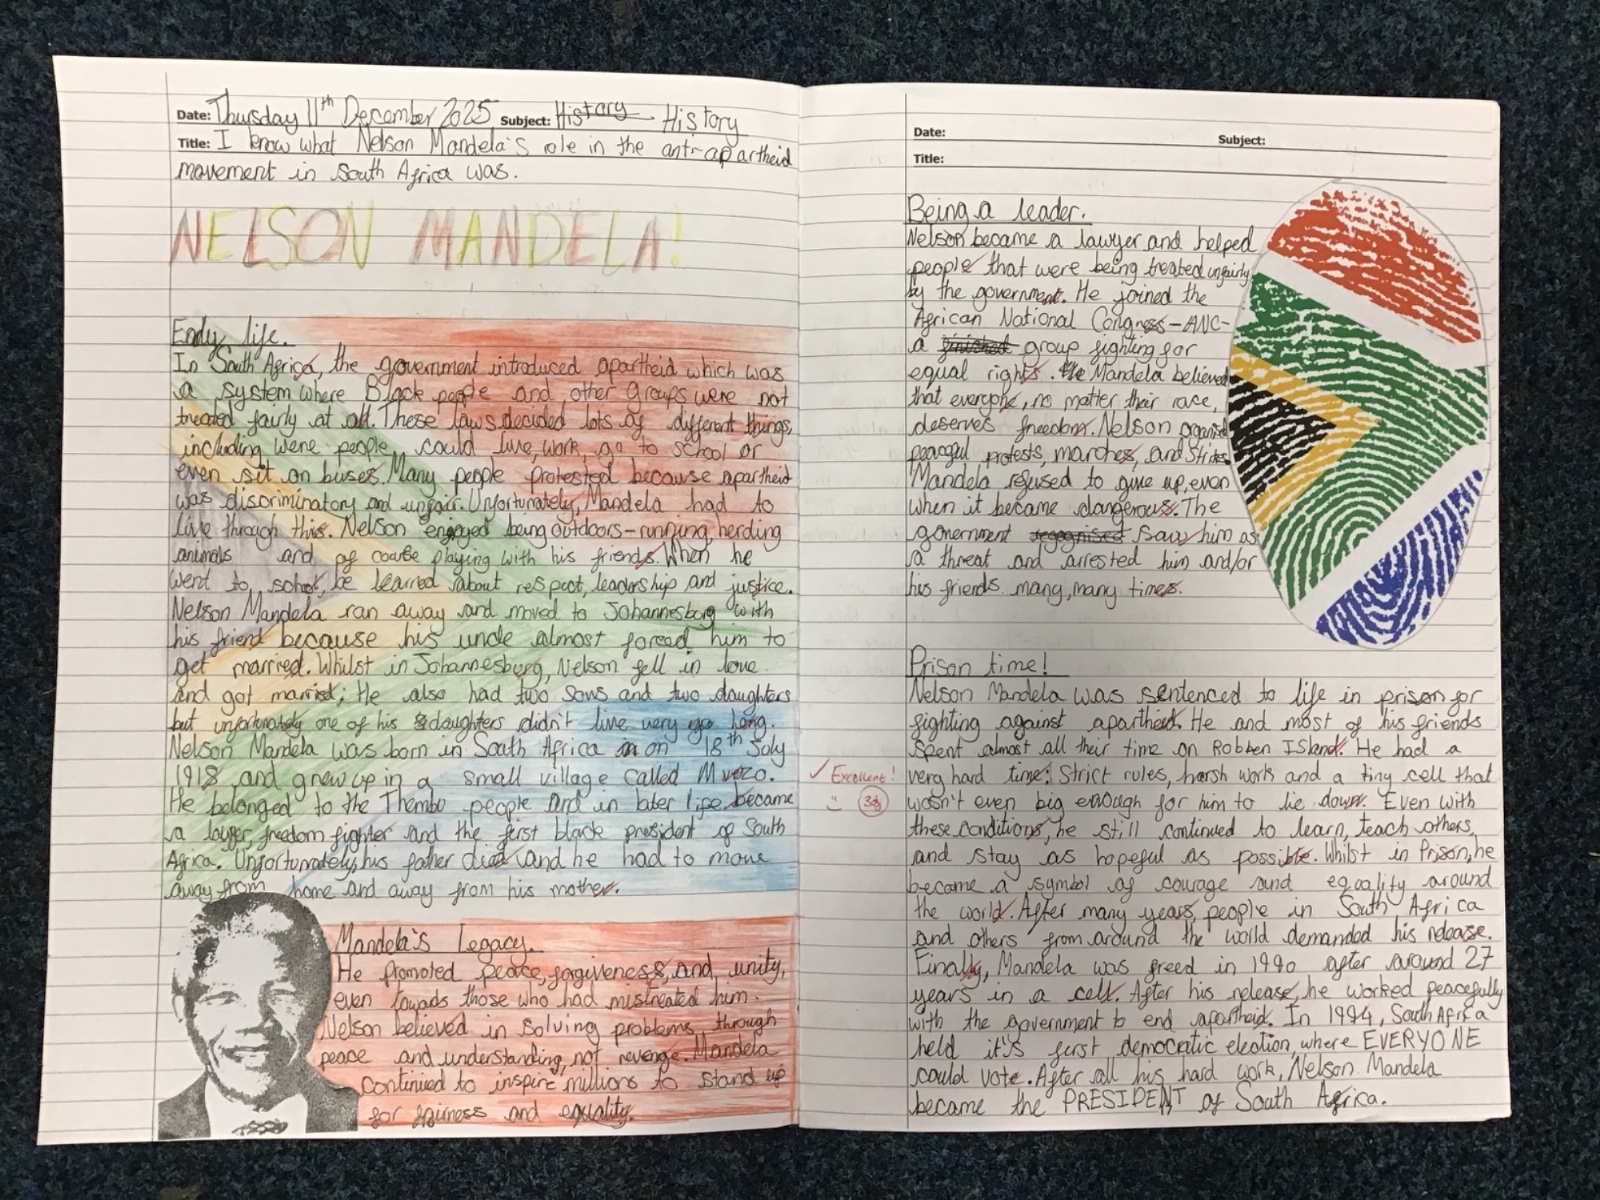 Date: Thursday 11th December 2025 Subject: History History
Title: I know what Nelson Mandela's role in the anti-apartheid
movement in South Africa was.
NELSON MANDELA!
Early life.
In South Africa, the government introduced apartheid which was
a system where Black people and other groups were not
treated fairly at all. These laws decided lots of different things,
including were people could live, work, go to school or
even sit on buses. Many people protested because apartheid
was discriminatory and unfair. Unfortunately, Mandela had to
live through this. Nelson enjoyed being outdoors-running, herding
animals and of course playing with his friends. When he
went to school, he learned about respect, leadership and justice.
Nelson Mandela ran away and moved to Johannesburg with
his friend because his uncle almost forced him to
get married. Whilst in Johannesburg, Nelson fell in love
and got married; He also had two sons and two daughters
but unfortunately one of his daughters didn't live very long.
Nelson Mandela was born in South Africa on 18th July
1918 and grew up in a small village called Mvezo.
He belonged to the Thembu people and in later life became
a lawyer, freedom fighter and the first black president of South
Africa. Unfortunately, his father died and he had to move
away from home and away from his mother.
Mandela's Legacy.
He promoted peace, forgiveness, and unity,
even towads those who had mistreated him.
Nelson believed in solving problems through
peace and understanding, not revenge. Mandela
continued to inspire millions to stand up
for fairness and equality.
Date: Subject:
Title:
Being a leader.
Nelson became a lawyer and helped
people that were being treated unfairly
by the government. He joined the
African National Congress-ANC-
a finished group fighting for
equal rights. Mandela believed
that everyone, no matter their race,
deserves freedom. Nelson organised
peaceful protests, marches, and Strikes.
Mandela refused to give up, even
when it became dangerous. The
government saw him as
a threat and arrested him and/or
his friends many, many times.
Prison time!
Nelson Mandela was sentenced to life in prison for
fighting against apartheid. He and most of his friends
spent almost all their time on Robben Island. He had a
very hard time: Strict rules, harsh work and a tiny cell that
✓ Excellent!
wasn't even big enough for him to lie down. Even with
these conditions, he still continued to learn, teach others,
and stay as hopeful as possible. Whilst in Prison, he
became a symbol of courage and equality around
the world. After many years, people in South Africa
and others from around the world demanded his release.
Finally, Mandela was freed in 1990 after around 27
years in a cell. After his release, he worked peacefully
with the government to end apartheid. In 1994, South Africa
held it's first democratic election where EVERYONE
could vote. After all his hard work, Nelson Mandela
became the PRESIDENT of South Africa.